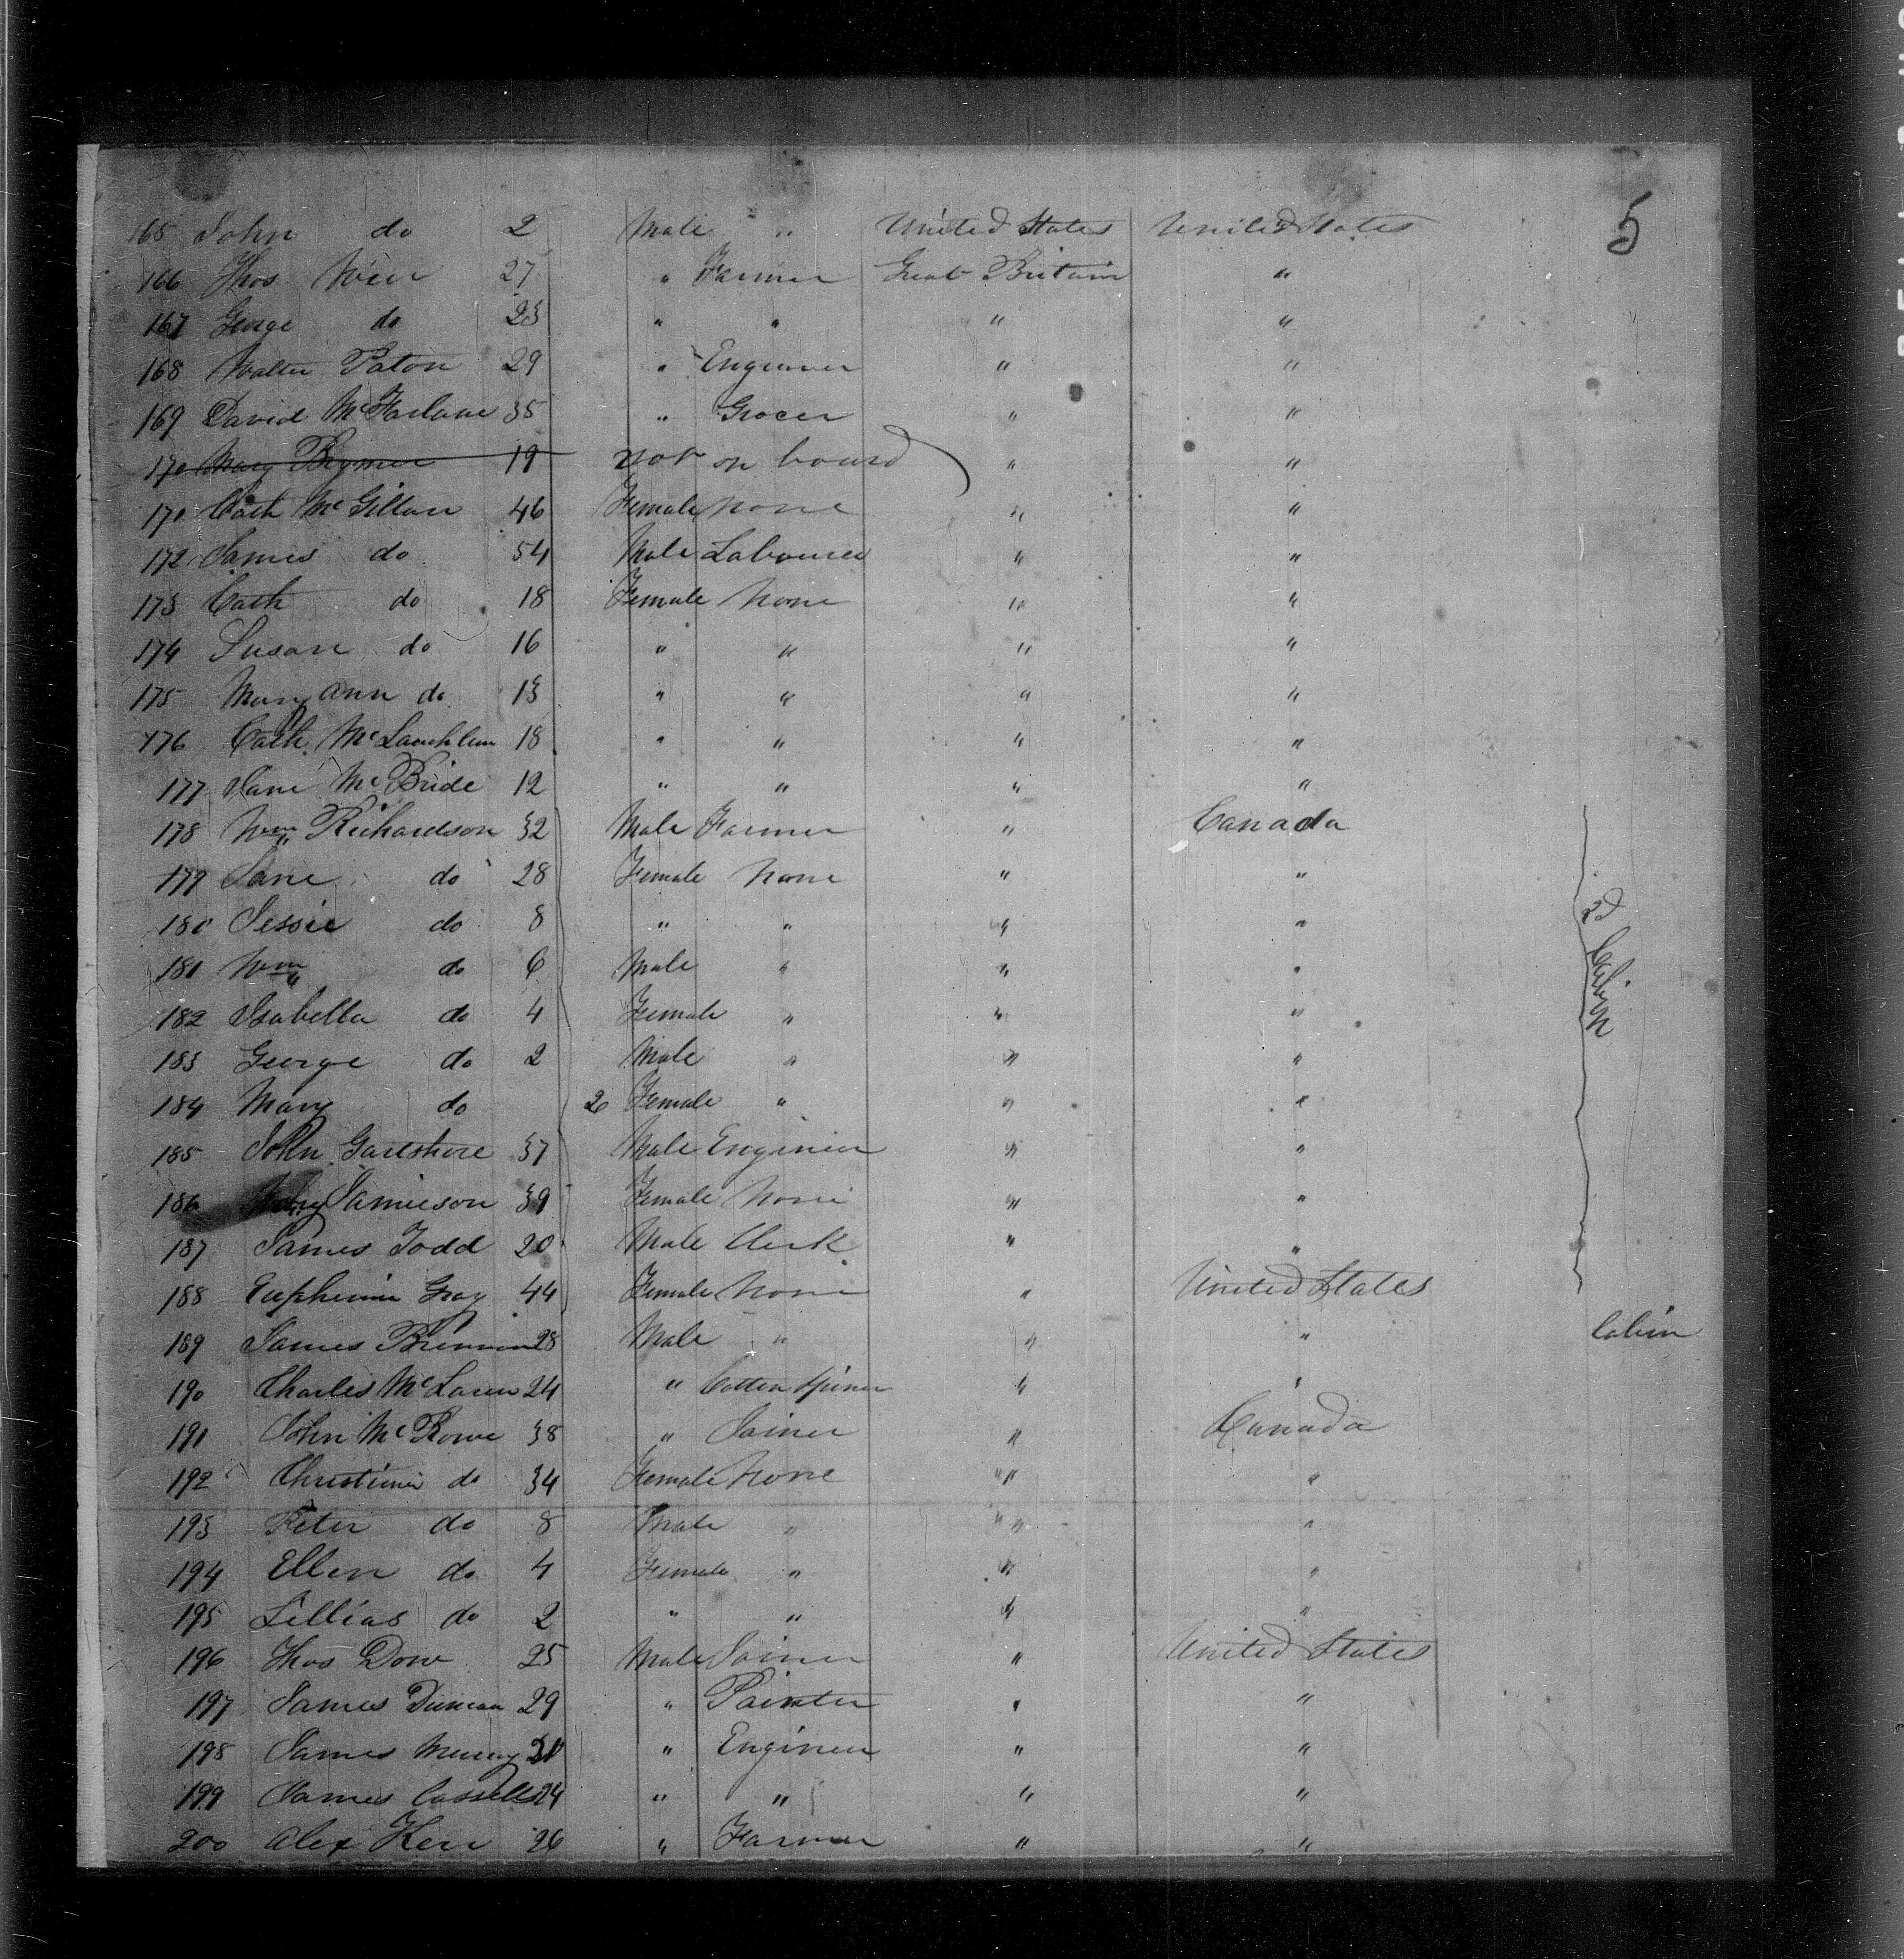 5
165 John do 2 Male " United States United States
166 Thos Weir 27 " Farmer Great Britain "
167 George do 23 " " " "
168 Walter Paton 29 " Engraver " "
169 David McFarlane 35 " Grocer " "
170 Mary Brymer 19 not on board " "
171 Cath McGillan 46 Female None " "
172 James do 54 Male Labourer " "
173 Cath do 18 Female None " "
174 Susan do 16 " " " "
175 Mary Ann do 13 " " " "
176 Cath McLauchlan 18 " " " "
177 Jane McBride 12 " " " "
178 Wm Richardson 32 Male Farmer " Canada
179 Jane do 28 Female None " "
180 Jessie do 8 " " " "
181 Wm do 6 Male " " "
182 Isabella do 4 Female " " "
2d Cabin
183 George do 2 Male " " "
184 Mary do 2 Female " " "
185 John Gartshore 37 Male Enginier " "
186 Mary Jamieson 39 Female None " "
187 James Todd 20 Male Clerk " "
188 Euphemia Gray 44 Female None " United States
189 James Brennan 28 Male " " " Cabin
190 Charles McLaren 24 " Cotton Spiner " "
191 John McRowe 38 " Joiner " Canada
192 Christina do 34 Female None " "
193 Peter do 8 Male " " "
194 Ellen do 4 Female " " "
195 Lillias do 2 " " " "
196 Thos Dow 25 Male Joiner " United States
197 James Duncan 29 " Painter " "
198 James Murray " Engineer " "
199 James Cassells 24 " " " "
200 Alex Kerr 26 " Farmer " "